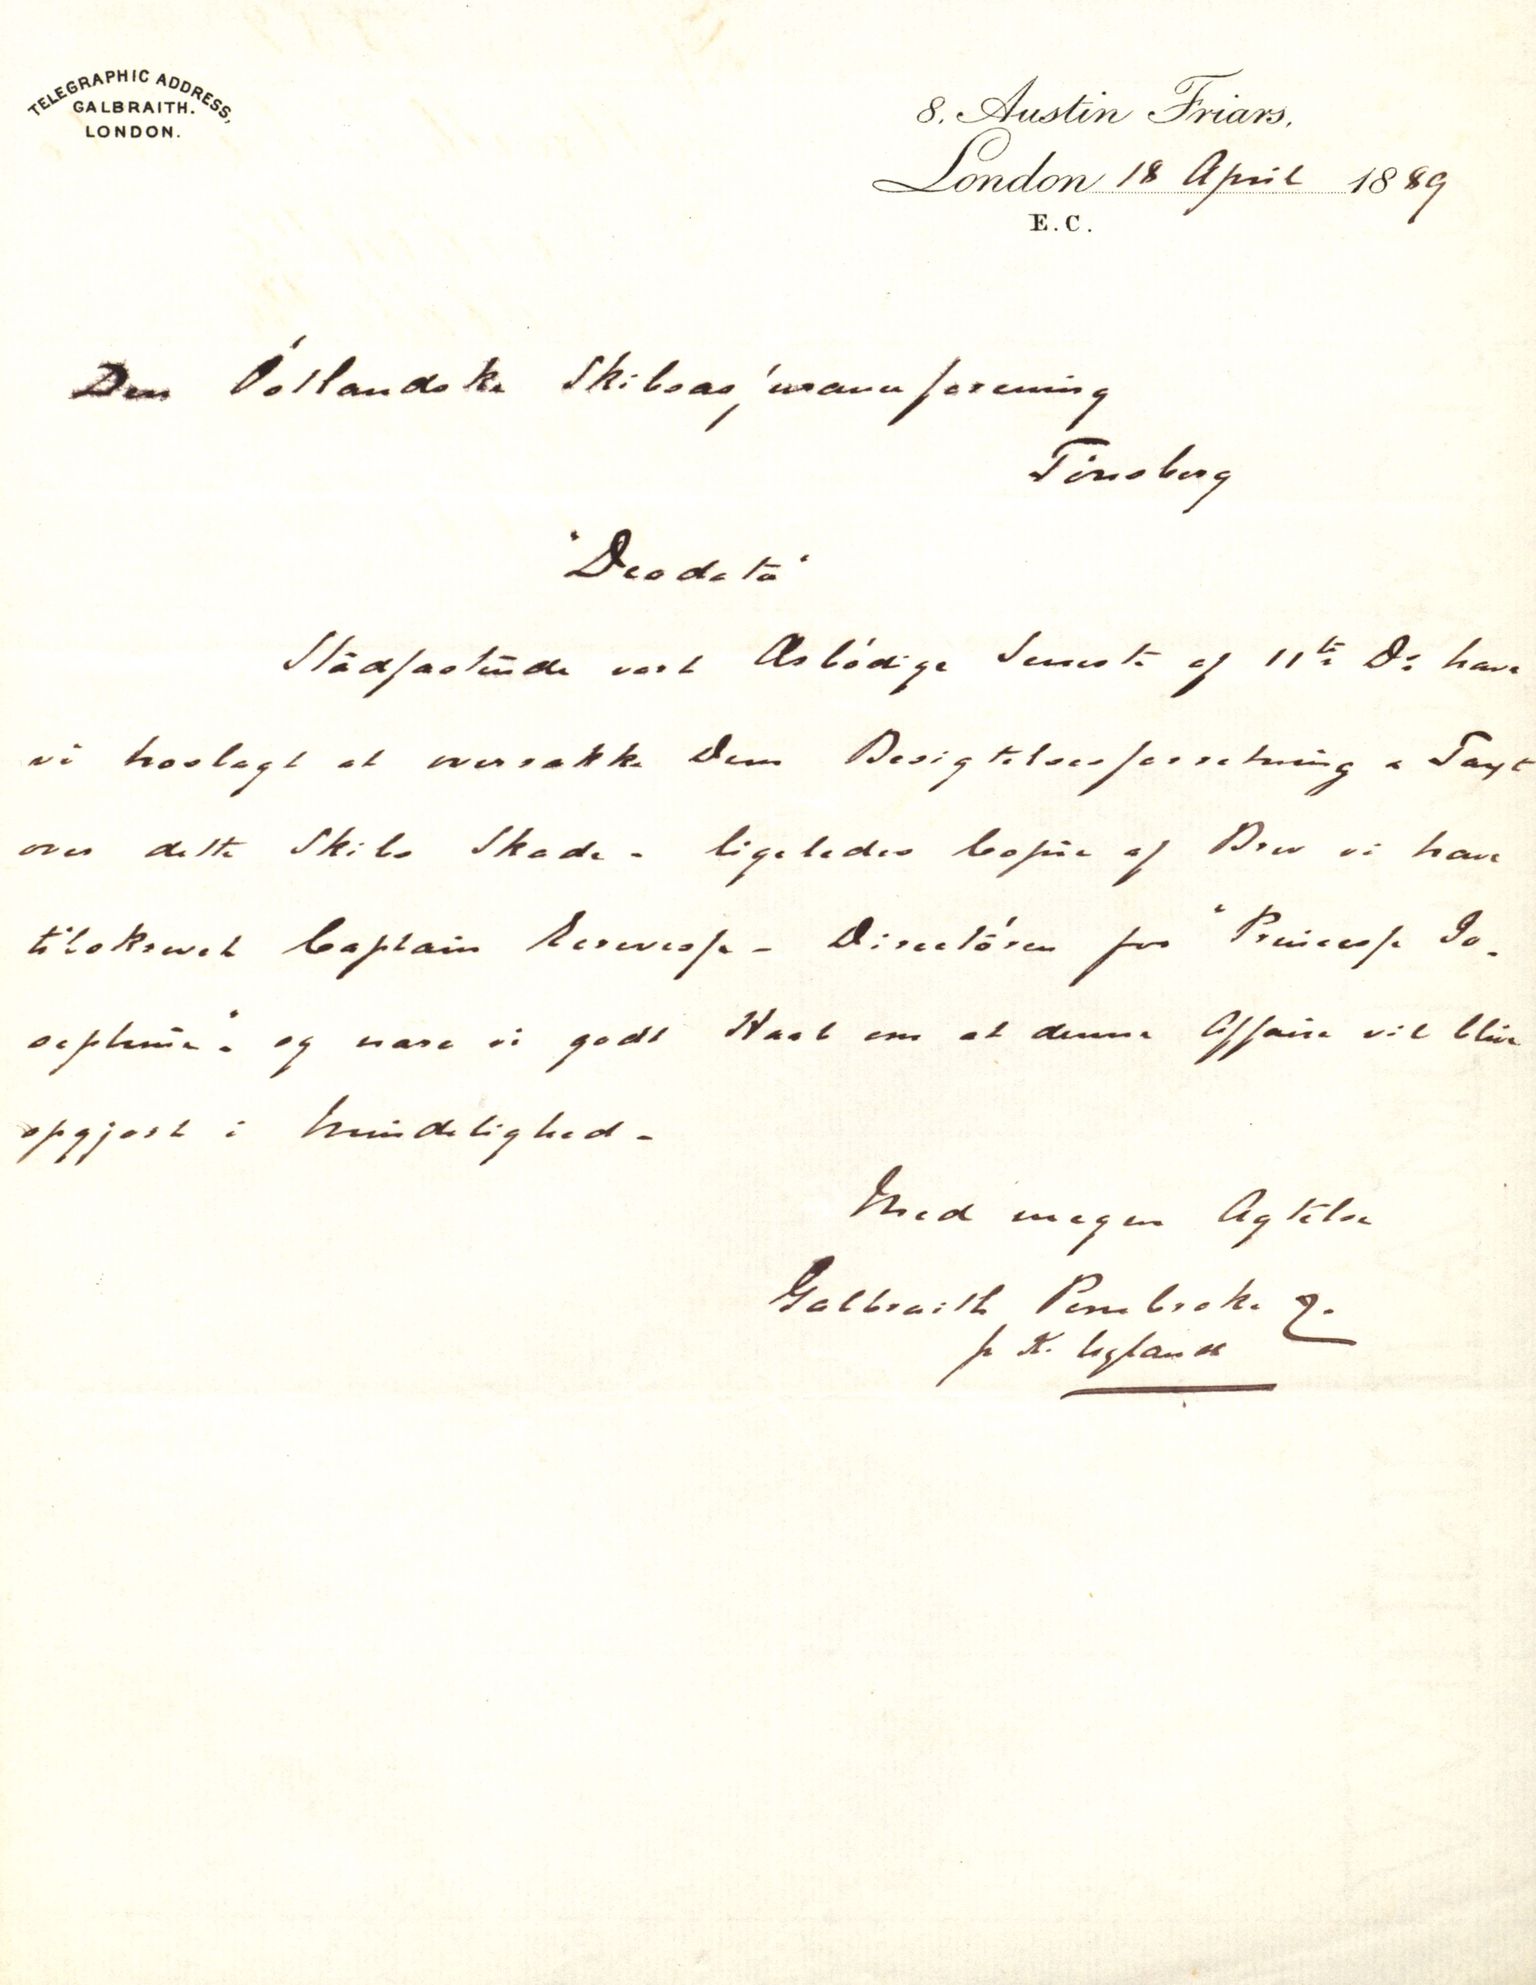 TELEGRAPHIC ADDRESS,
GALBRAITH.
LONDON.
8. Austin Friars,
London 18 April 1889
E.C.
Den Östlandske Skibsassuranceforening
Tönsberg
"Deodata"
Stadfæstende vort Ærbödige Seneste af 11te Ds have
vi hoslagt at oversække Dem Besigtelsesforretning & Taxt
over dette Skibs Skade - ligeledes Copie af Brev vi have
tilskrevet Captain - Directören for "Princess Jo-
sephine" - og nare vi godt Haab om at denne Affaire vil blive
opgjort i Mindelighed -
Med megen Agtelse
Galbraith Pembroke &
p K. Ugland